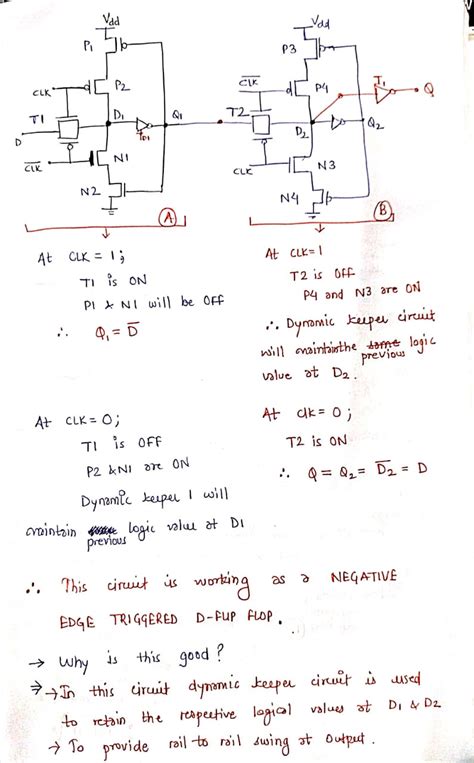 Vdd
Vdd
P1
P3
CLK
P2
C̅L̅K̅
P4
T1
D1
Q1
T2
T1
Q
D
D2
Q2
C̅L̅K̅
N1
CLK
N3
N2
N4
A
B
At CLK = 1;
T1 is ON
P1 & N1 will be OFF
∴ Q1 = D̅
At CLK=1
T2 is OFF
P4 and N3 are ON
∴ Dynamic keeper circuit
will maintain the previous logic
value at D2.
At CLK=0;
T1 is OFF
P2 & N1 are ON
Dynamic keeper 1 will
maintain previous logic value at D1
At clk = 0;
T2 is ON
∴ Q = Q2 = D̅2̅ = D
∴ This circuit is working as a NEGATIVE
EDGE TRIGGERED D-FLIP FLOP.
→ Why is this good?
⇒ → In this circuit dynamic keeper circuit is used
to retain the respective logical values at D1 & D2
→ To provide rail to rail swing at output.